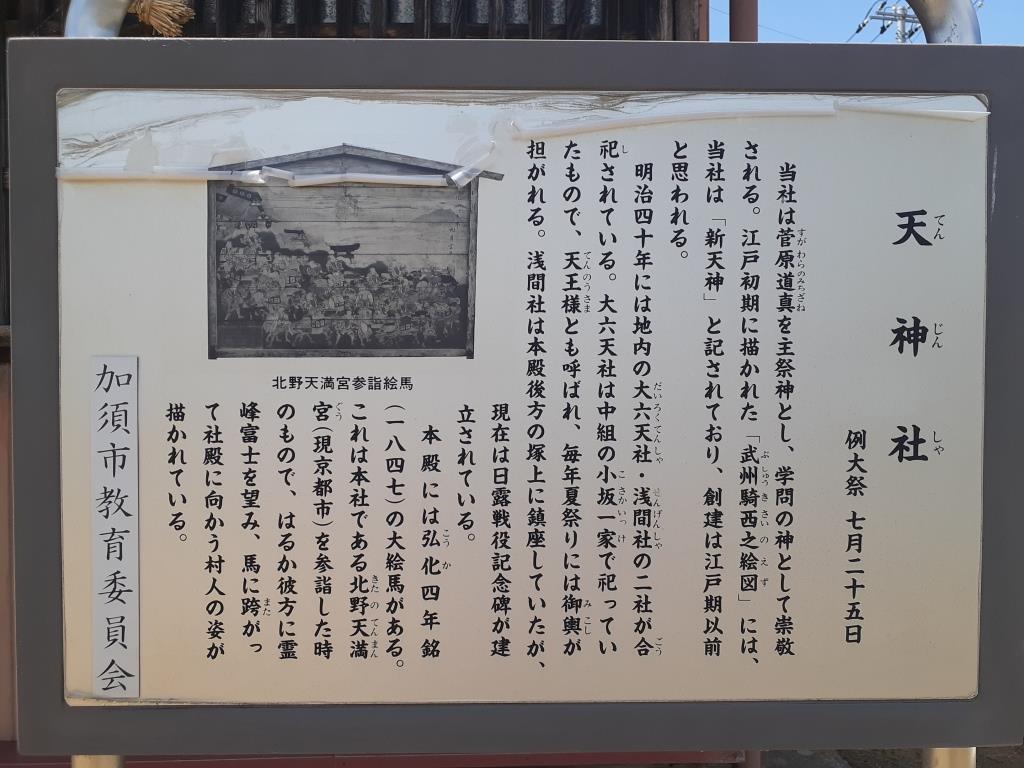 天神社
例大祭 七月二十五日
当社は菅原道真を主祭神とし、学問の神として崇敬
される。江戸初期に描かれた「武州騎西之絵図」には、
当社は「新天神」と記されており、創建は江戸期以前
と思われる。
明治四十年には地内の大六天社・浅間社の二社が合
祀されている。大六天社は中組の小坂一家で祀ってい
たもので、天王様とも呼ばれ、毎年夏祭りには御輿が
担がれる。浅間社は本殿後方の塚上に鎮座していたが、
現在は日露戦役記念碑が建
立されている。
本殿には弘化四年銘
(一八四七)の大絵馬がある。
これは本社である北野天満
宮(現京都市)を参詣した時
のもので、はるか彼方に霊
峰富士を望み、馬に跨がっ
て社殿に向かう村人の姿が
描かれている。
北野天満宮参詣絵馬
加須市教育委員会